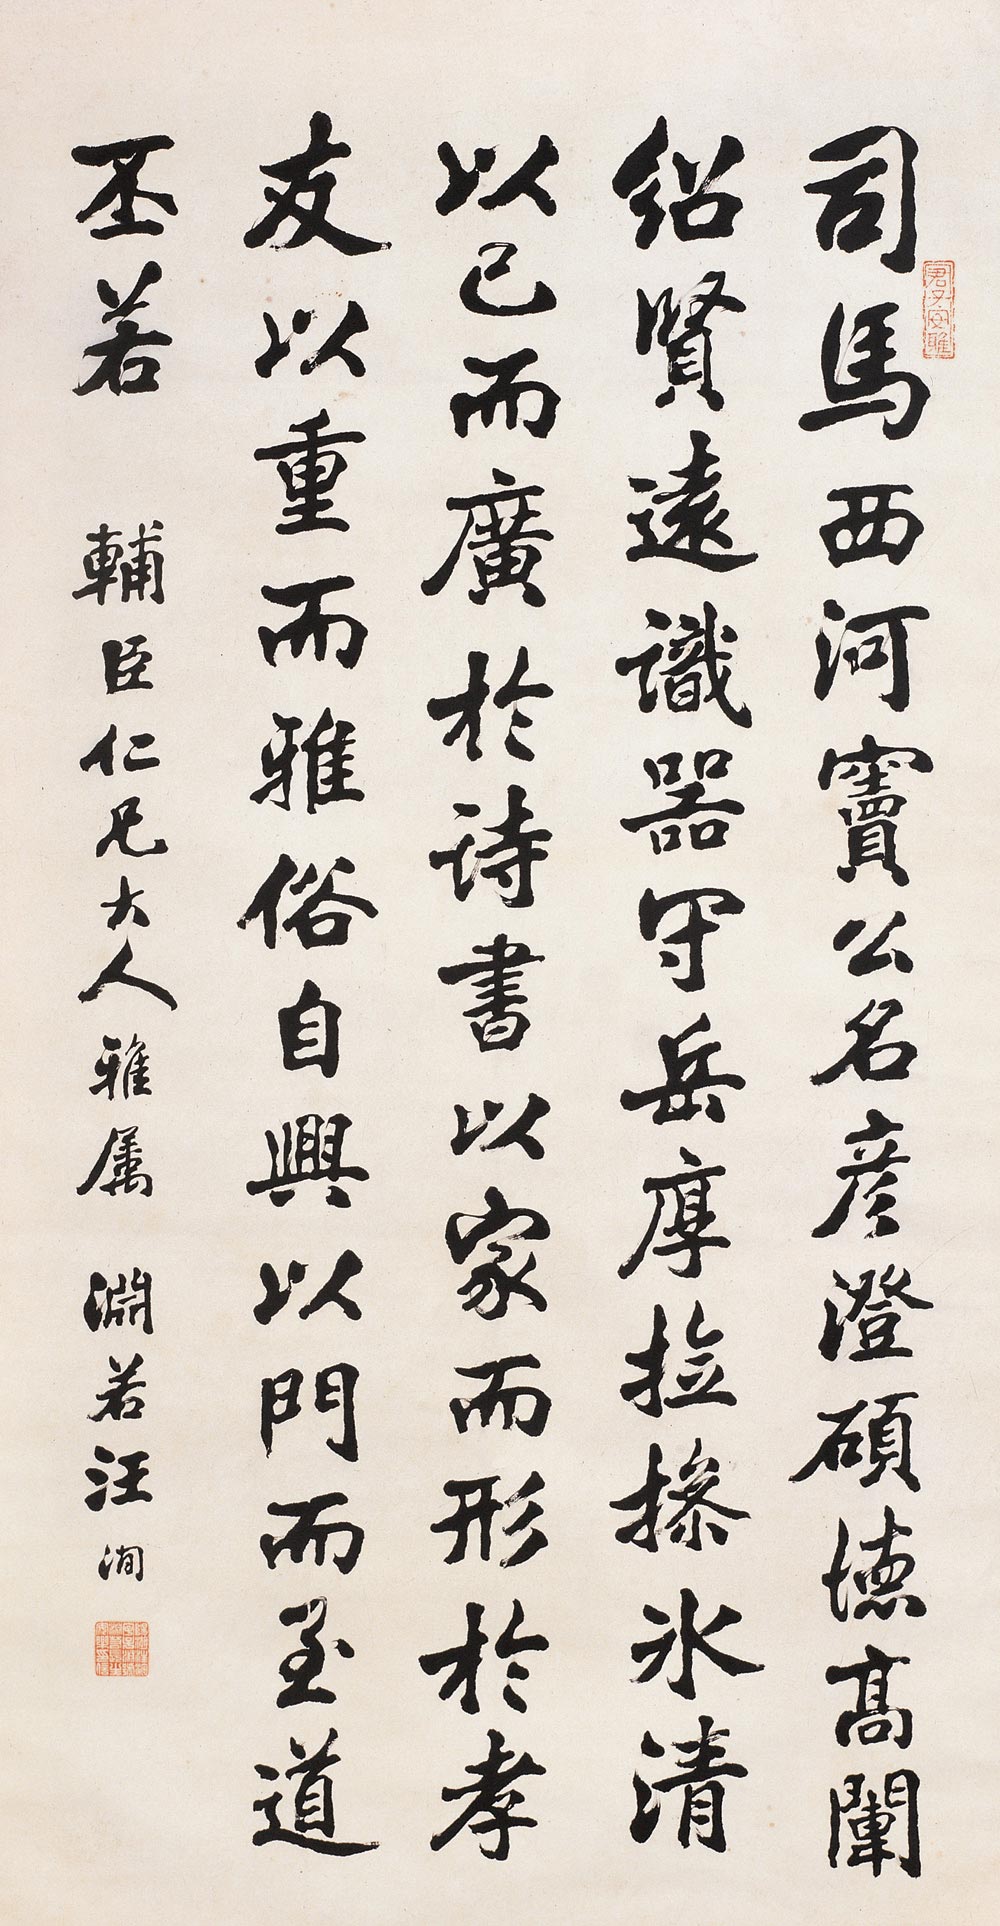 司馬西河竇公名彥澄碩德高闡
紹賢遠識器守岳厚撿操氷清
以己而廣於詩書以家而形於孝
友以重而雅俗自興以門而至道
丕若
輔臣仁兄大人雅屬
淵若汪洵
君子安雅